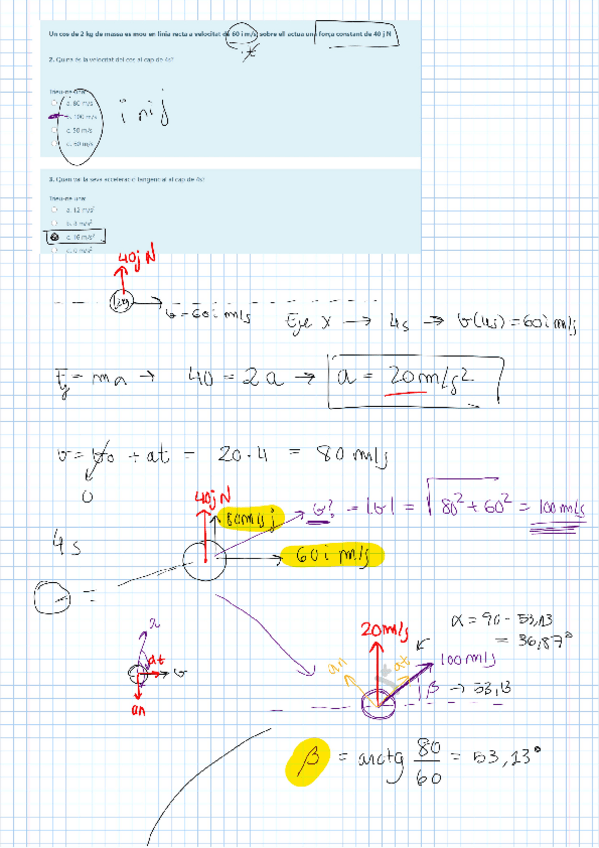 Un cos de 2 kg de massa es mou en línia recta a velocitat de 60 i m/s, sobre ell actua una força constant de 40 j N
2. Quina és la velocitat del cos al cap de 4s?
a. 80 m/s
b. 100 m/s
i n i j
3. Quina és la seva acceleració tangencial al cap de 4s?
a. 12 m/s²
c. 16 m/s²
40j N
2kg
v = 60 i m/s
Eje x → 4s → v(4s) = 60 i m/s
Fy = ma → 40 = 2a → a = 20 m/s²
v = v0 + at = 20·4 = 80 m/s
0
40j N
80 m/s j
v? = |v| = √80² + 60² = 100 m/s
4s
60 i m/s
=
at
v
an
20 m/s
α = 90 - 53,13
= 36,87°
an
at
100 m/s
β → 53,13
β = arctg 80/60 = 53,13°